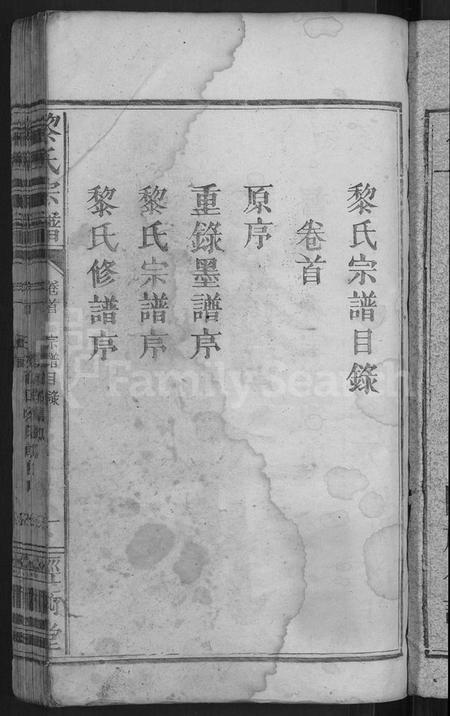 黎氏宗譜目錄
卷首
原序
重錄墨譜序
黎氏宗譜序
黎氏修譜序
黎氏宗譜
卷首 宗譜目錄
一
FamilySearch